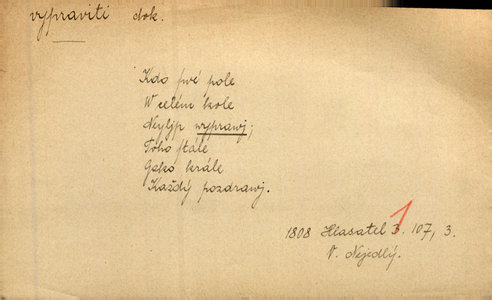 vypraviti dok.
Kdo swé pole
W celém kole
Neylýp wyprawj;
Toho stále
Gako krále
Každý pozdrawj.
1808 Hlasatel 3. 107, 3.
V. Nejedlý.